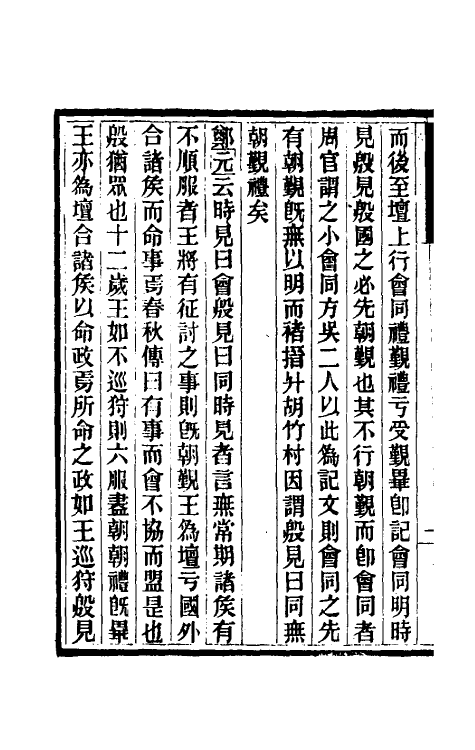 而後至壇上行會同禮覲禮亏受覲畢卽記會同明時
見殷見殷國之必先朝覲也其不行朝覲而卽會同者
周官謂之小會同方吳二人以此為記文則會同之先
有朝覲旣無以明而褚搢升胡竹村因謂殷見曰同無
朝覲禮矣
鄭元云時見曰會殷見曰同時見者言無常期諸矦有
不順服者王將有征討之事則旣朝覲王為壇亏國外
合諸矦而命事焉春秋傳曰有事而會不協而盟是也
殷猶眾也十二歲王如不巡狩則六服盡朝朝禮旣畢
王亦為壇合諸矦以命政焉所命之政如王巡狩殷見